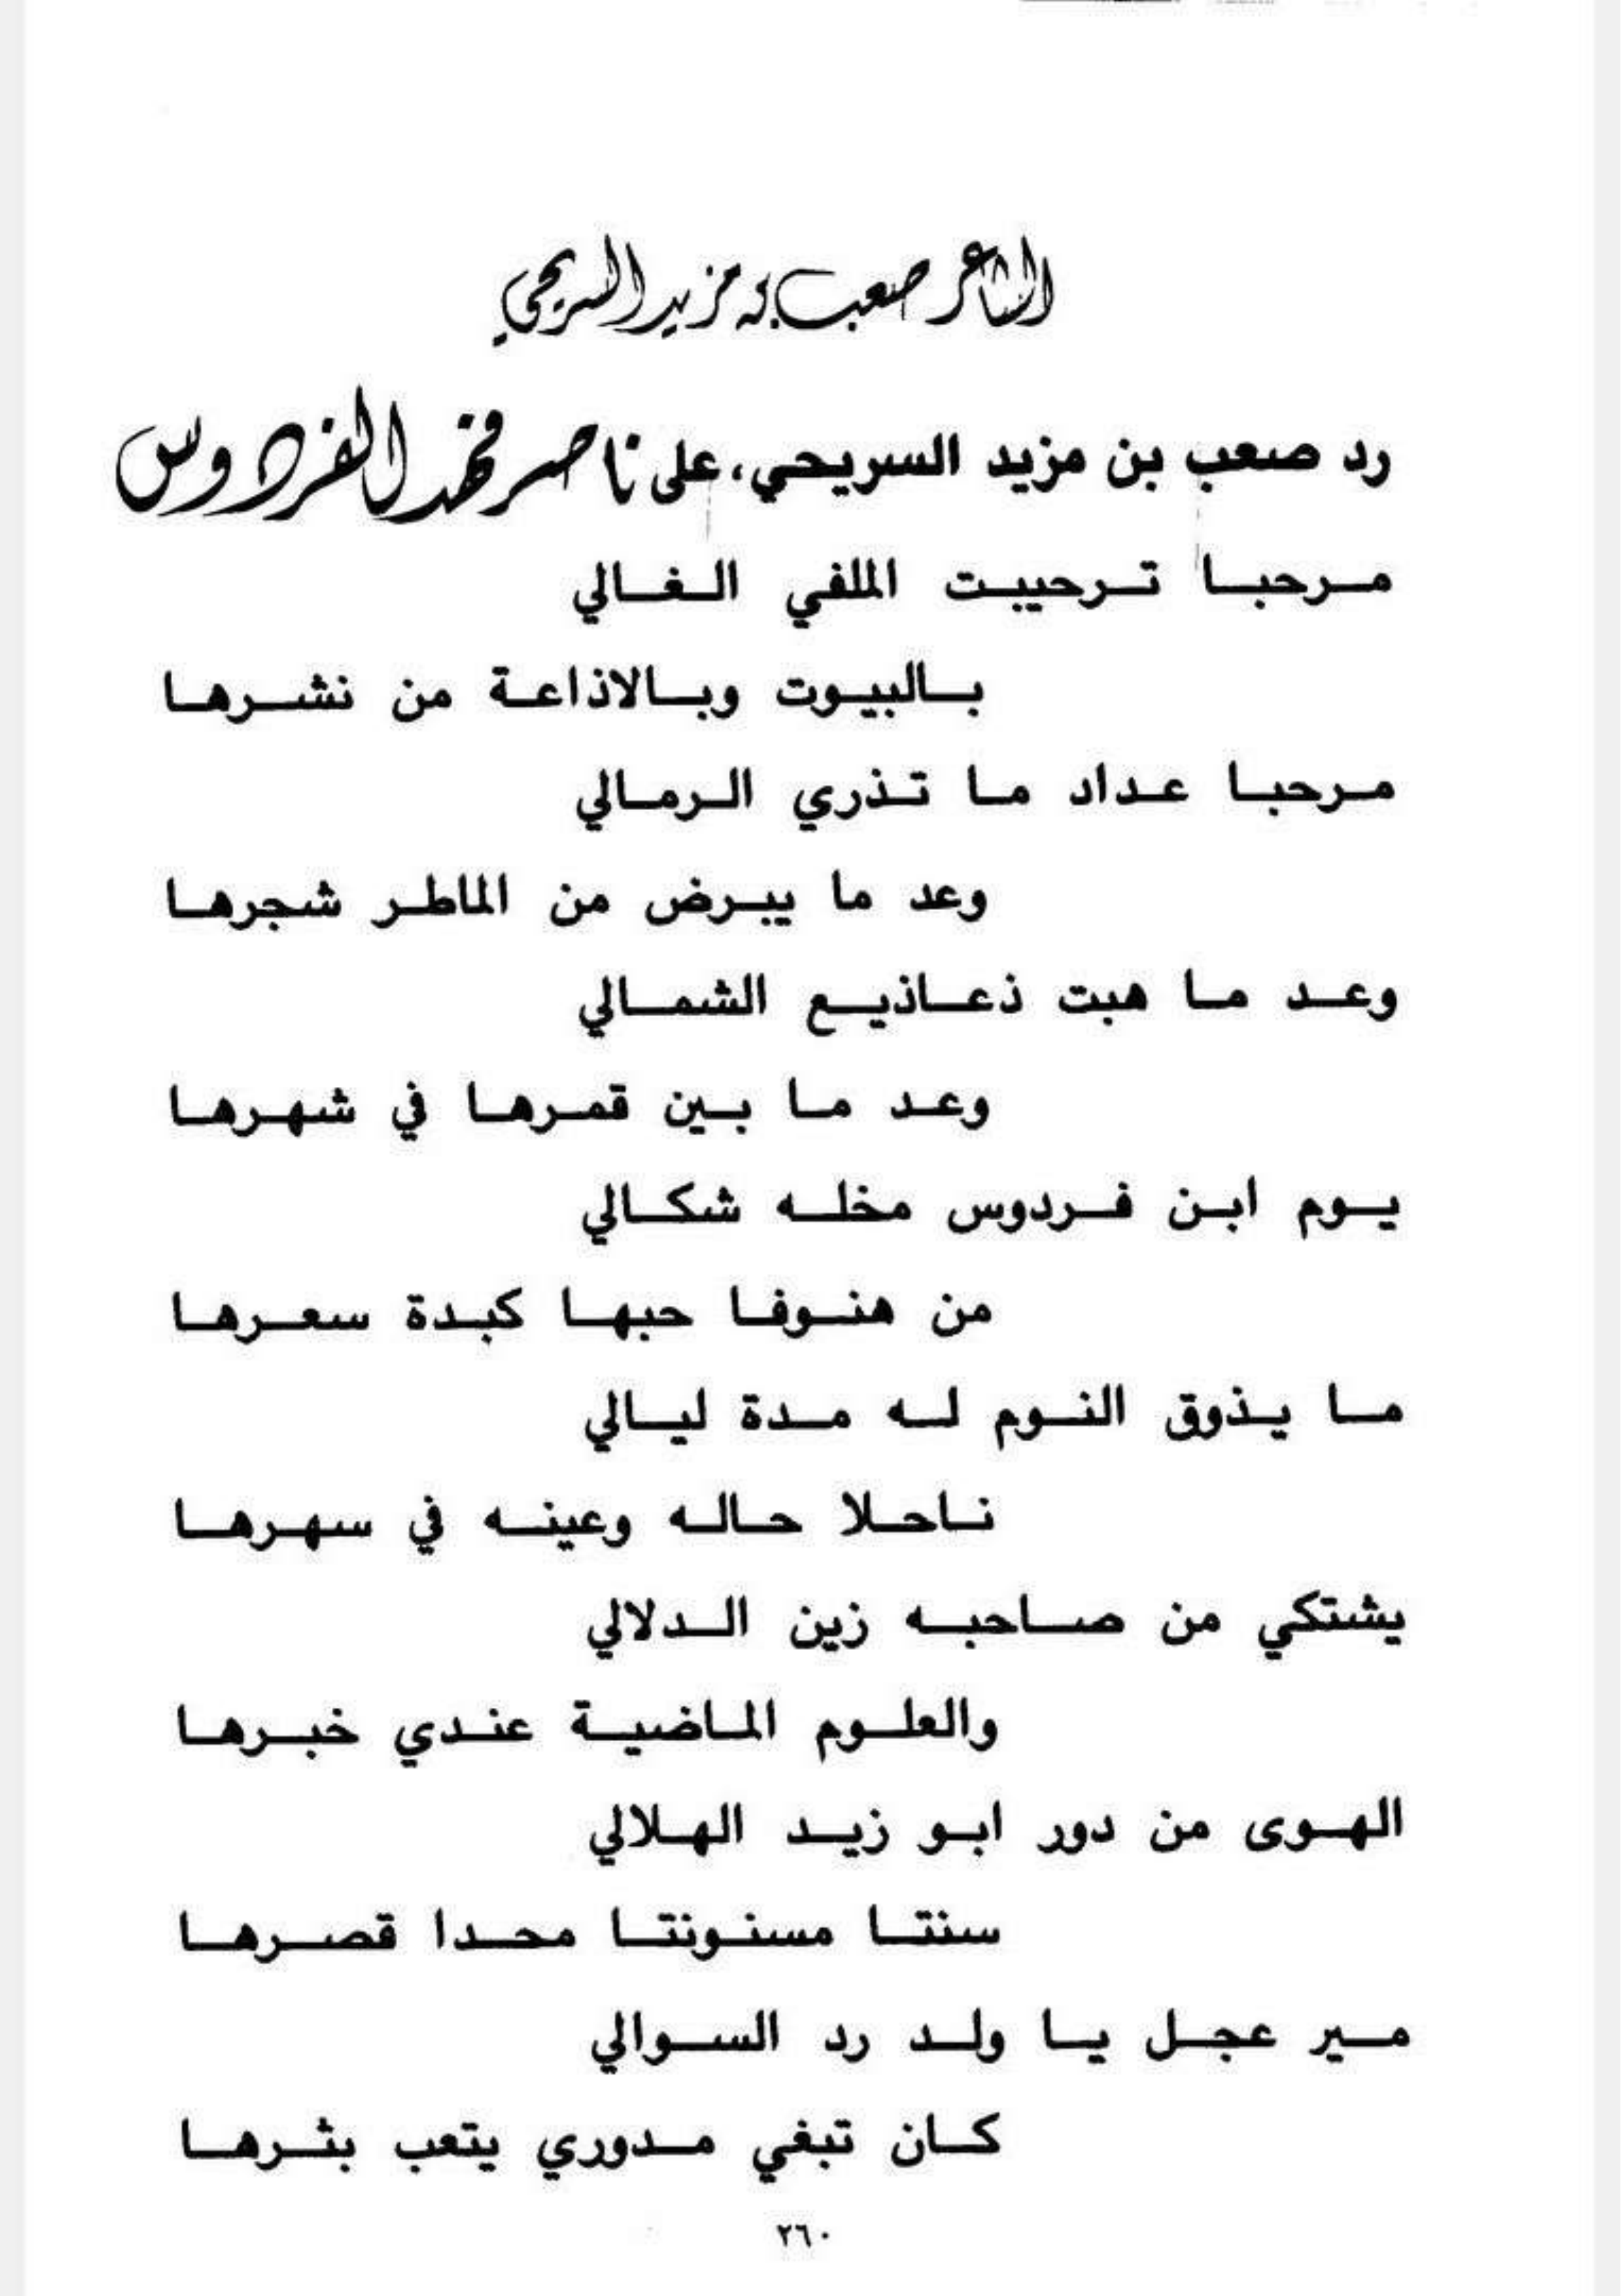 الشاعر صعب بن مزيد السريحي
رد صعب بن مزيد السريحي، على ناصر فهد الفردوس
مرحبا ترحيبت الملفي الغالي
بالبيوت وبالاذاعة من نشرها
مرحبا عداد ما تذري الرمالي
وعد ما يبرض من الماطر شجرها
وعد ما هبت ذعاذيع الشمالي
وعد ما بين قمرها في شهرها
يوم ابن فردوس مخله شكالي
من هنوفا حبها كبدة سعرها
ما يذوق النوم له مدة ليالي
ناحلا حاله وعينه في سهرها
يشتكي من صاحبه زين الدلالي
والعلوم الماضية عندي خبرها
الهوى من دور ابو زيد الهلالي
سنتا مسنونتا محدا قصرها
مير عجل يا ولد رد السوالي
كان تبغي مدوري يتعب بثرها
٢٦٠